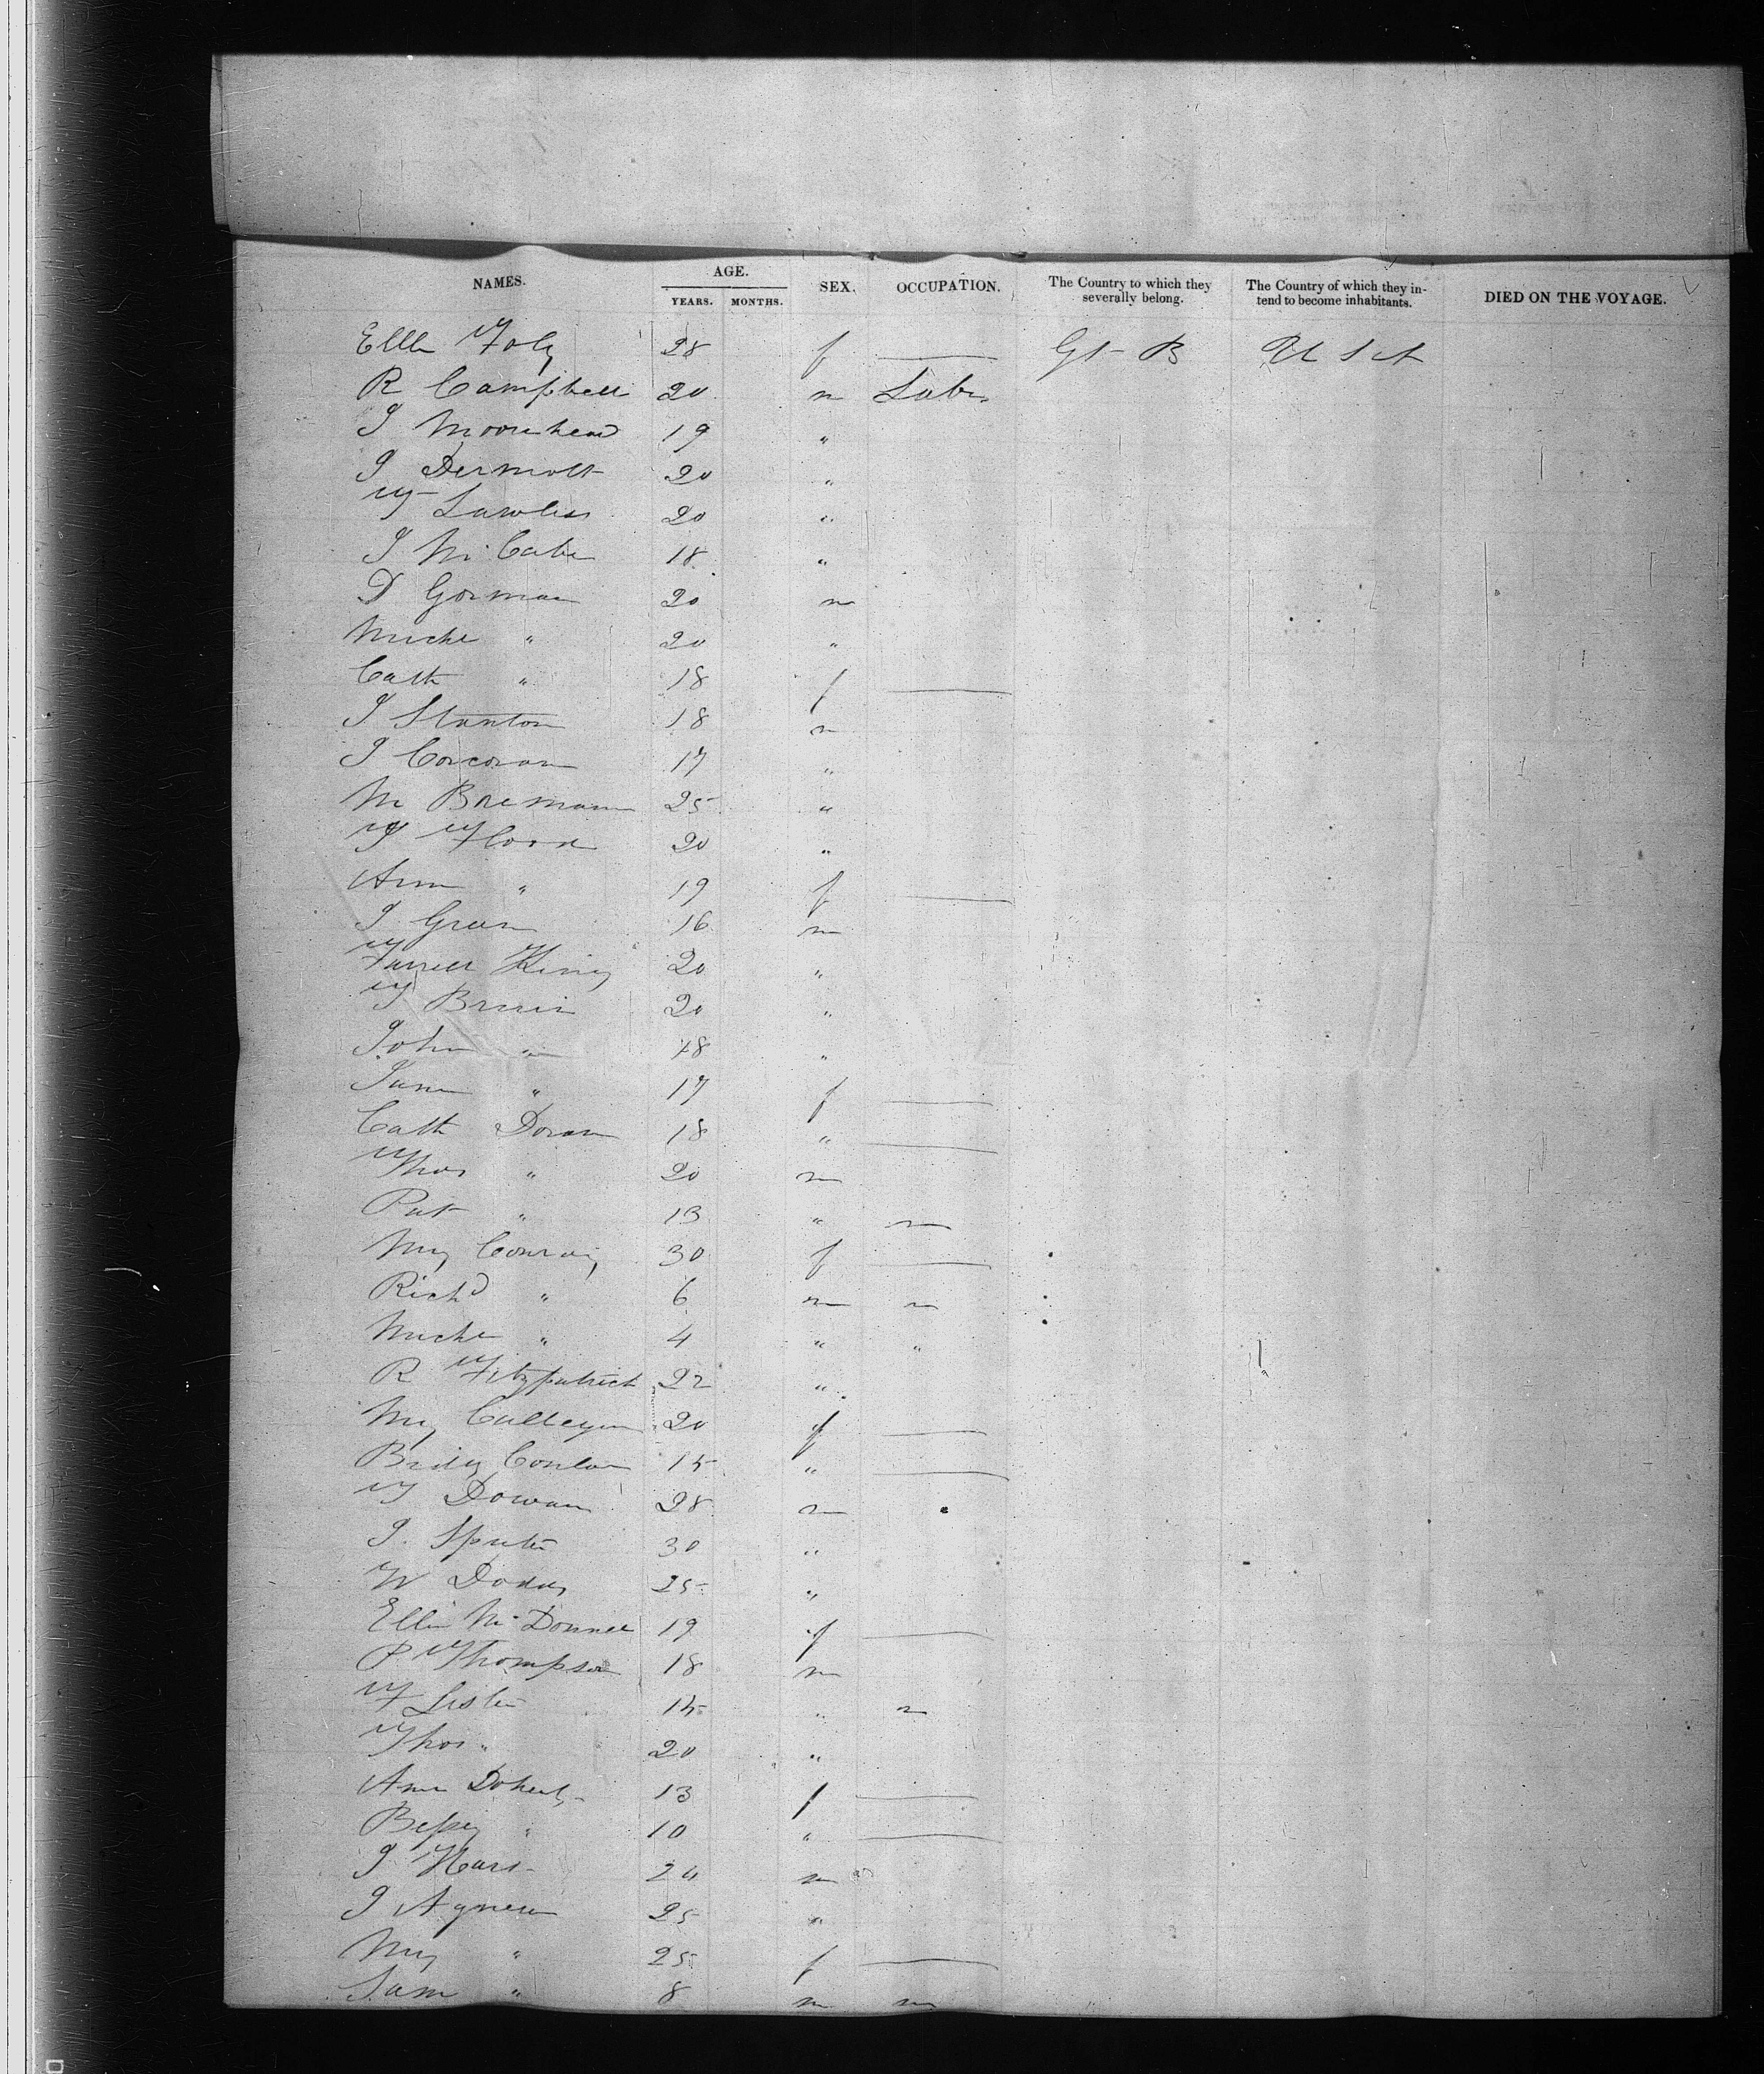 NAMES. AGE. SEX. OCCUPATION. The Country to which they severally belong. The Country of which they intend to become inhabitants. DIED ON THE VOYAGE.
YEARS. MONTHS.
Elln Foly 28 f — Gt B U S A
R Campbell 20 m Labr
J Moorehead 19 "
J Dermott 20 "
T Lawless 20 "
J McCabe 18 "
D Gorman 20 m
Miche " 20 "
Cath " 18 f —
J Stanton 18 m
J Corcoran 17 "
M Brennan 25 "
T Flood 20 "
Ann " 19 f —
J Gran 16 m
Farrell King 20 "
T Bruin 20 "
John " 18 "
Jane " 17 f —
Cath Doran 18 " —
Thos " 20 m
Pat " 13 " —
My Conroy 30 f —
Richd " 6 m —
Miche " 4 " "
R Fitzpatrick 22 "
My 20 f —
Bridg Conlon 15 " —
T Dowan 28 m
J. 30 "
W 25 "
Ellen McDonnell 19 f —
P. Thompson 18 m
F Leslie 15 " —
Thos " 20 "
Ann Doherty 13 f —
Bessy " 10 " —
J 24 m
J Agnew 25 "
My " 25 f —
Sam " 8 m —